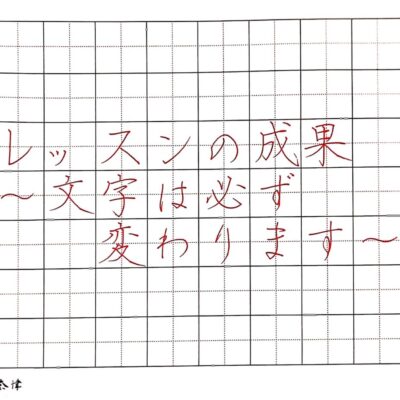 レッスンの成果
～文字は必ず
変わります～